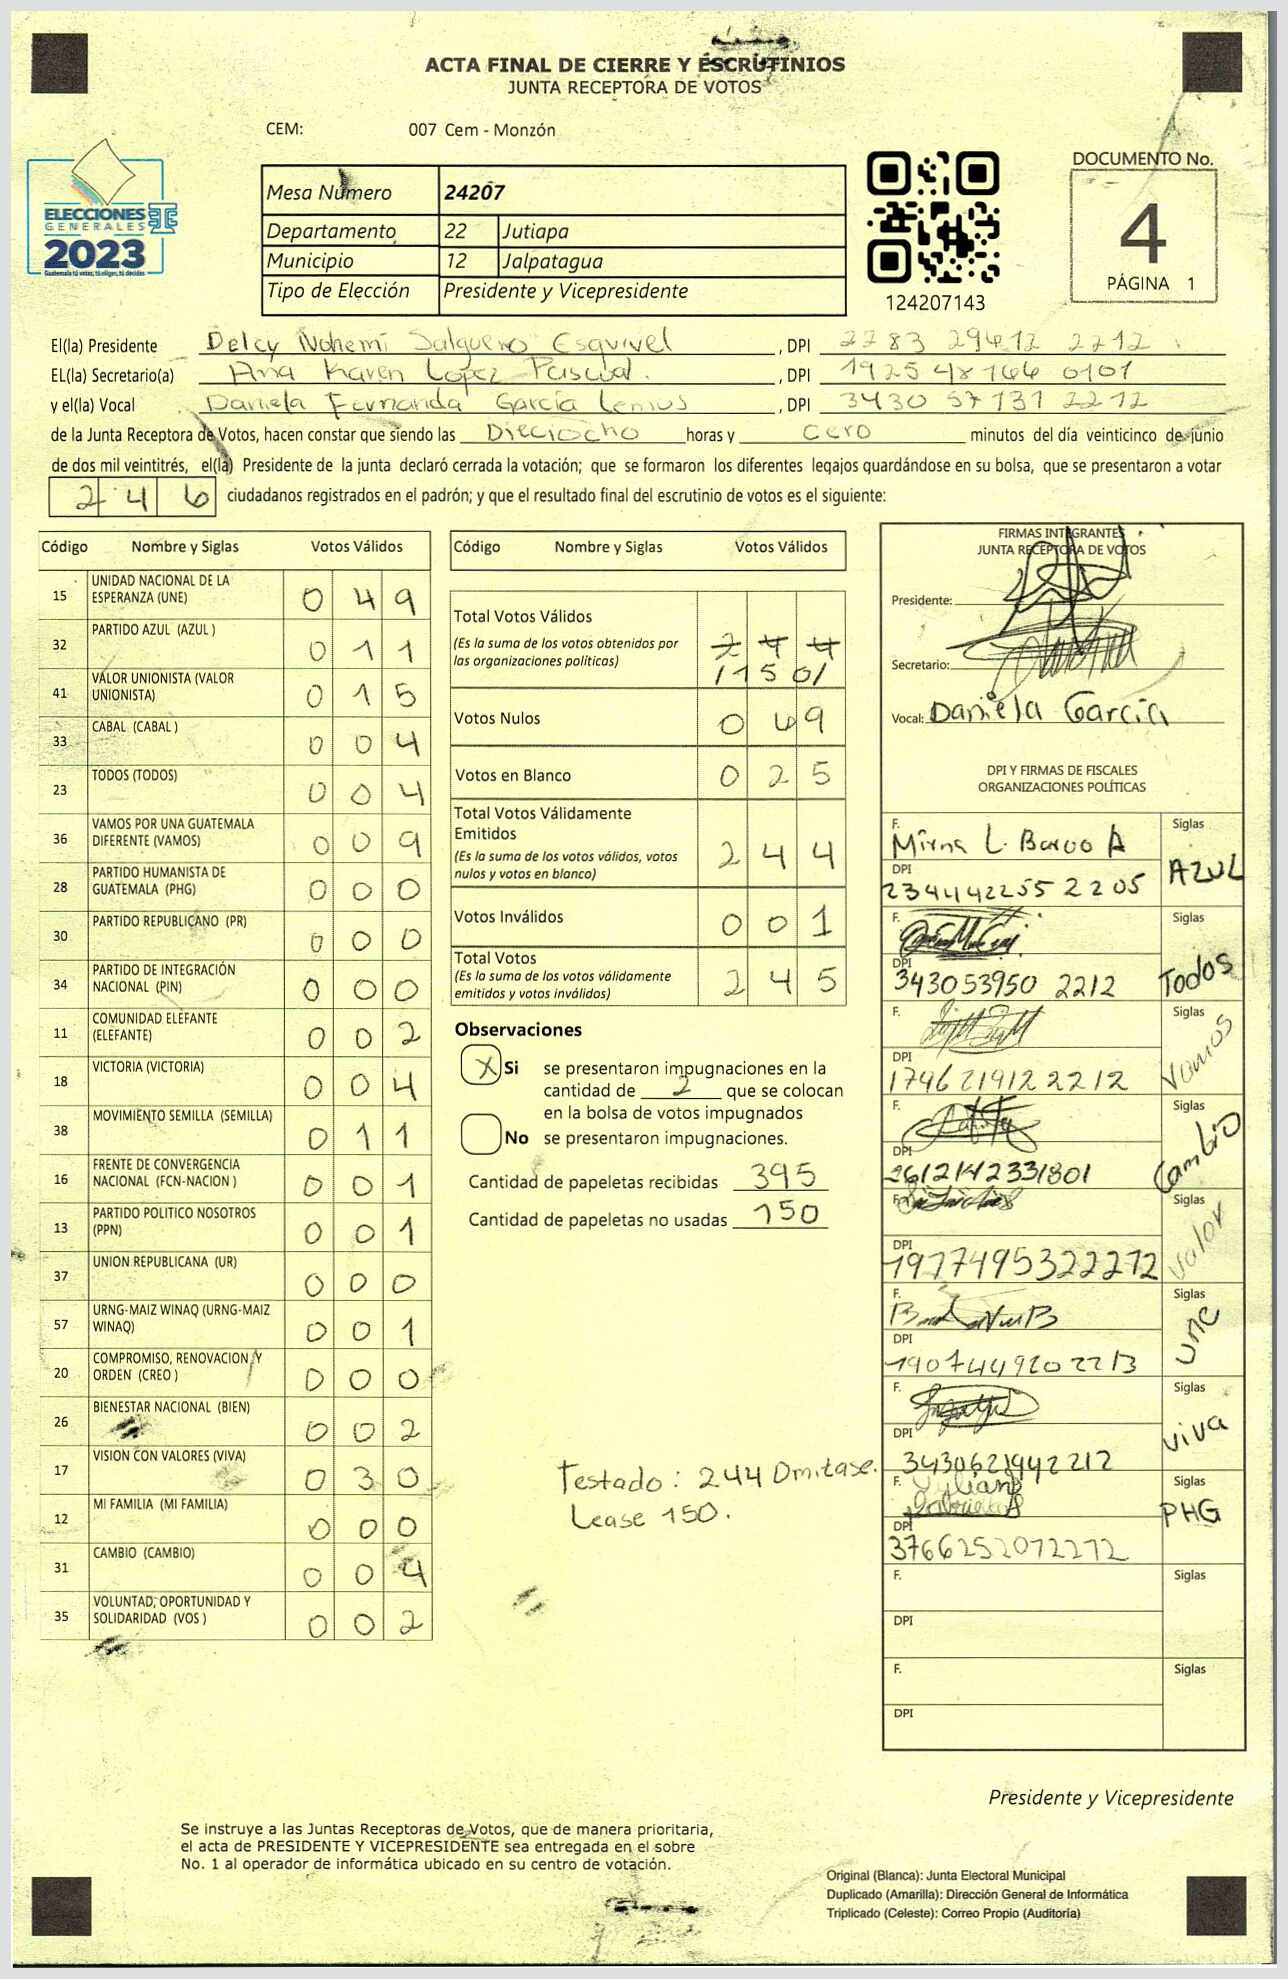 ACTA FINAL DE CIERRE Y ESCRUTINIOS
JUNTA RECEPTORA DE VOTOS
CEM: 007 Cem - Monzón
ELECCIONES
GENERALES
2023
Guatemala tú votas, tú eliges, tú decides
Mesa Número 24207
Departamento 22 Jutiapa
Municipio 12 Jalpatagua
Tipo de Elección Presidente y Vicepresidente
124207143
DOCUMENTO No.
4
PÁGINA 1
El(la) Presidente Delcy Nohemi Salguero Esquivel , DPI 2283 29412 2212
EL(la) Secretario(a) Ana Karen Lopez Pascual. , DPI 1925 48766 0101
y el(la) Vocal Daniela Fernanda García Lemus , DPI 3430 57131 2212
de la Junta Receptora de Votos, hacen constar que siendo las Dieciocho horas y cero minutos del día veinticinco de junio
de dos mil veintitrés, el(la) Presidente de la junta declaró cerrada la votación; que se formaron los diferentes legajos guardándose en su bolsa, que se presentaron a votar
246 ciudadanos registrados en el padrón; y que el resultado final del escrutinio de votos es el siguiente:
Código Nombre y Siglas Votos Válidos
15 UNIDAD NACIONAL DE LA ESPERANZA (UNE) 049
32 PARTIDO AZUL (AZUL ) 011
41 VALOR UNIONISTA (VALOR UNIONISTA) 015
33 CABAL (CABAL ) 004
23 TODOS (TODOS) 004
36 VAMOS POR UNA GUATEMALA DIFERENTE (VAMOS) 009
28 PARTIDO HUMANISTA DE GUATEMALA (PHG) 000
30 PARTIDO REPUBLICANO (PR) 000
34 PARTIDO DE INTEGRACIÓN NACIONAL (PIN) 000
11 COMUNIDAD ELEFANTE (ELEFANTE) 002
18 VICTORIA (VICTORIA) 004
38 MOVIMIENTO SEMILLA (SEMILLA) 011
16 FRENTE DE CONVERGENCIA NACIONAL (FCN-NACION ) 001
13 PARTIDO POLITICO NOSOTROS (PPN) 001
37 UNION REPUBLICANA (UR) 000
57 URNG-MAIZ WINAQ (URNG-MAIZ WINAQ) 001
20 COMPROMISO, RENOVACION Y ORDEN (CREO ) 000
26 BIENESTAR NACIONAL (BIEN) 002
17 VISION CON VALORES (VIVA) 030
12 MI FAMILIA (MI FAMILIA) 000
31 CAMBIO (CAMBIO) 004
35 VOLUNTAD, OPORTUNIDAD Y SOLIDARIDAD (VOS ) 002
Código Nombre y Siglas Votos Válidos
Total Votos Válidos
(Es la suma de los votos obtenidos por las organizaciones políticas) 244
/150/
Votos Nulos 069
Votos en Blanco 025
Total Votos Válidamente Emitidos
(Es la suma de los votos válidos, votos nulos y votos en blanco) 244
Votos Inválidos 001
Total Votos
(Es la suma de los votos válidamente emitidos y votos inválidos) 245
Observaciones
X Si se presentaron impugnaciones en la
cantidad de 2 que se colocan
en la bolsa de votos impugnados
No se presentaron impugnaciones.
Cantidad de papeletas recibidas 395
Cantidad de papeletas no usadas 150
Testado: 244 Omitase.
Lease 150.
FIRMAS INTEGRANTES
JUNTA RECEPTORA DE VOTOS
Presidente:
Secretario:
Vocal: Daniela García
DPI Y FIRMAS DE FISCALES
ORGANIZACIONES POLÍTICAS
F. Mirna L. A Siglas AZUL
DPI 2344422552205
F. Siglas Todos
DPI 343053950 2212
F. Siglas Vamos
DPI 1746219122212
F. Siglas Cambio
DPI 2612142331801
F. Siglas Valor
DPI 1977495322212
F. Siglas Une
DPI 1907449202213
F. Siglas Viva
DPI 3430621942212
F. Siglas PHG
DPI 3766252072212
F. Siglas
DPI
F. Siglas
DPI
Presidente y Vicepresidente
Se instruye a las Juntas Receptoras de Votos, que de manera prioritaria,
el acta de PRESIDENTE Y VICEPRESIDENTE sea entregada en el sobre
No. 1 al operador de informática ubicado en su centro de votación.
Original (Blanca): Junta Electoral Municipal
Duplicado (Amarilla): Dirección General de Informática
Triplicado (Celeste): Correo Propio (Auditoría)